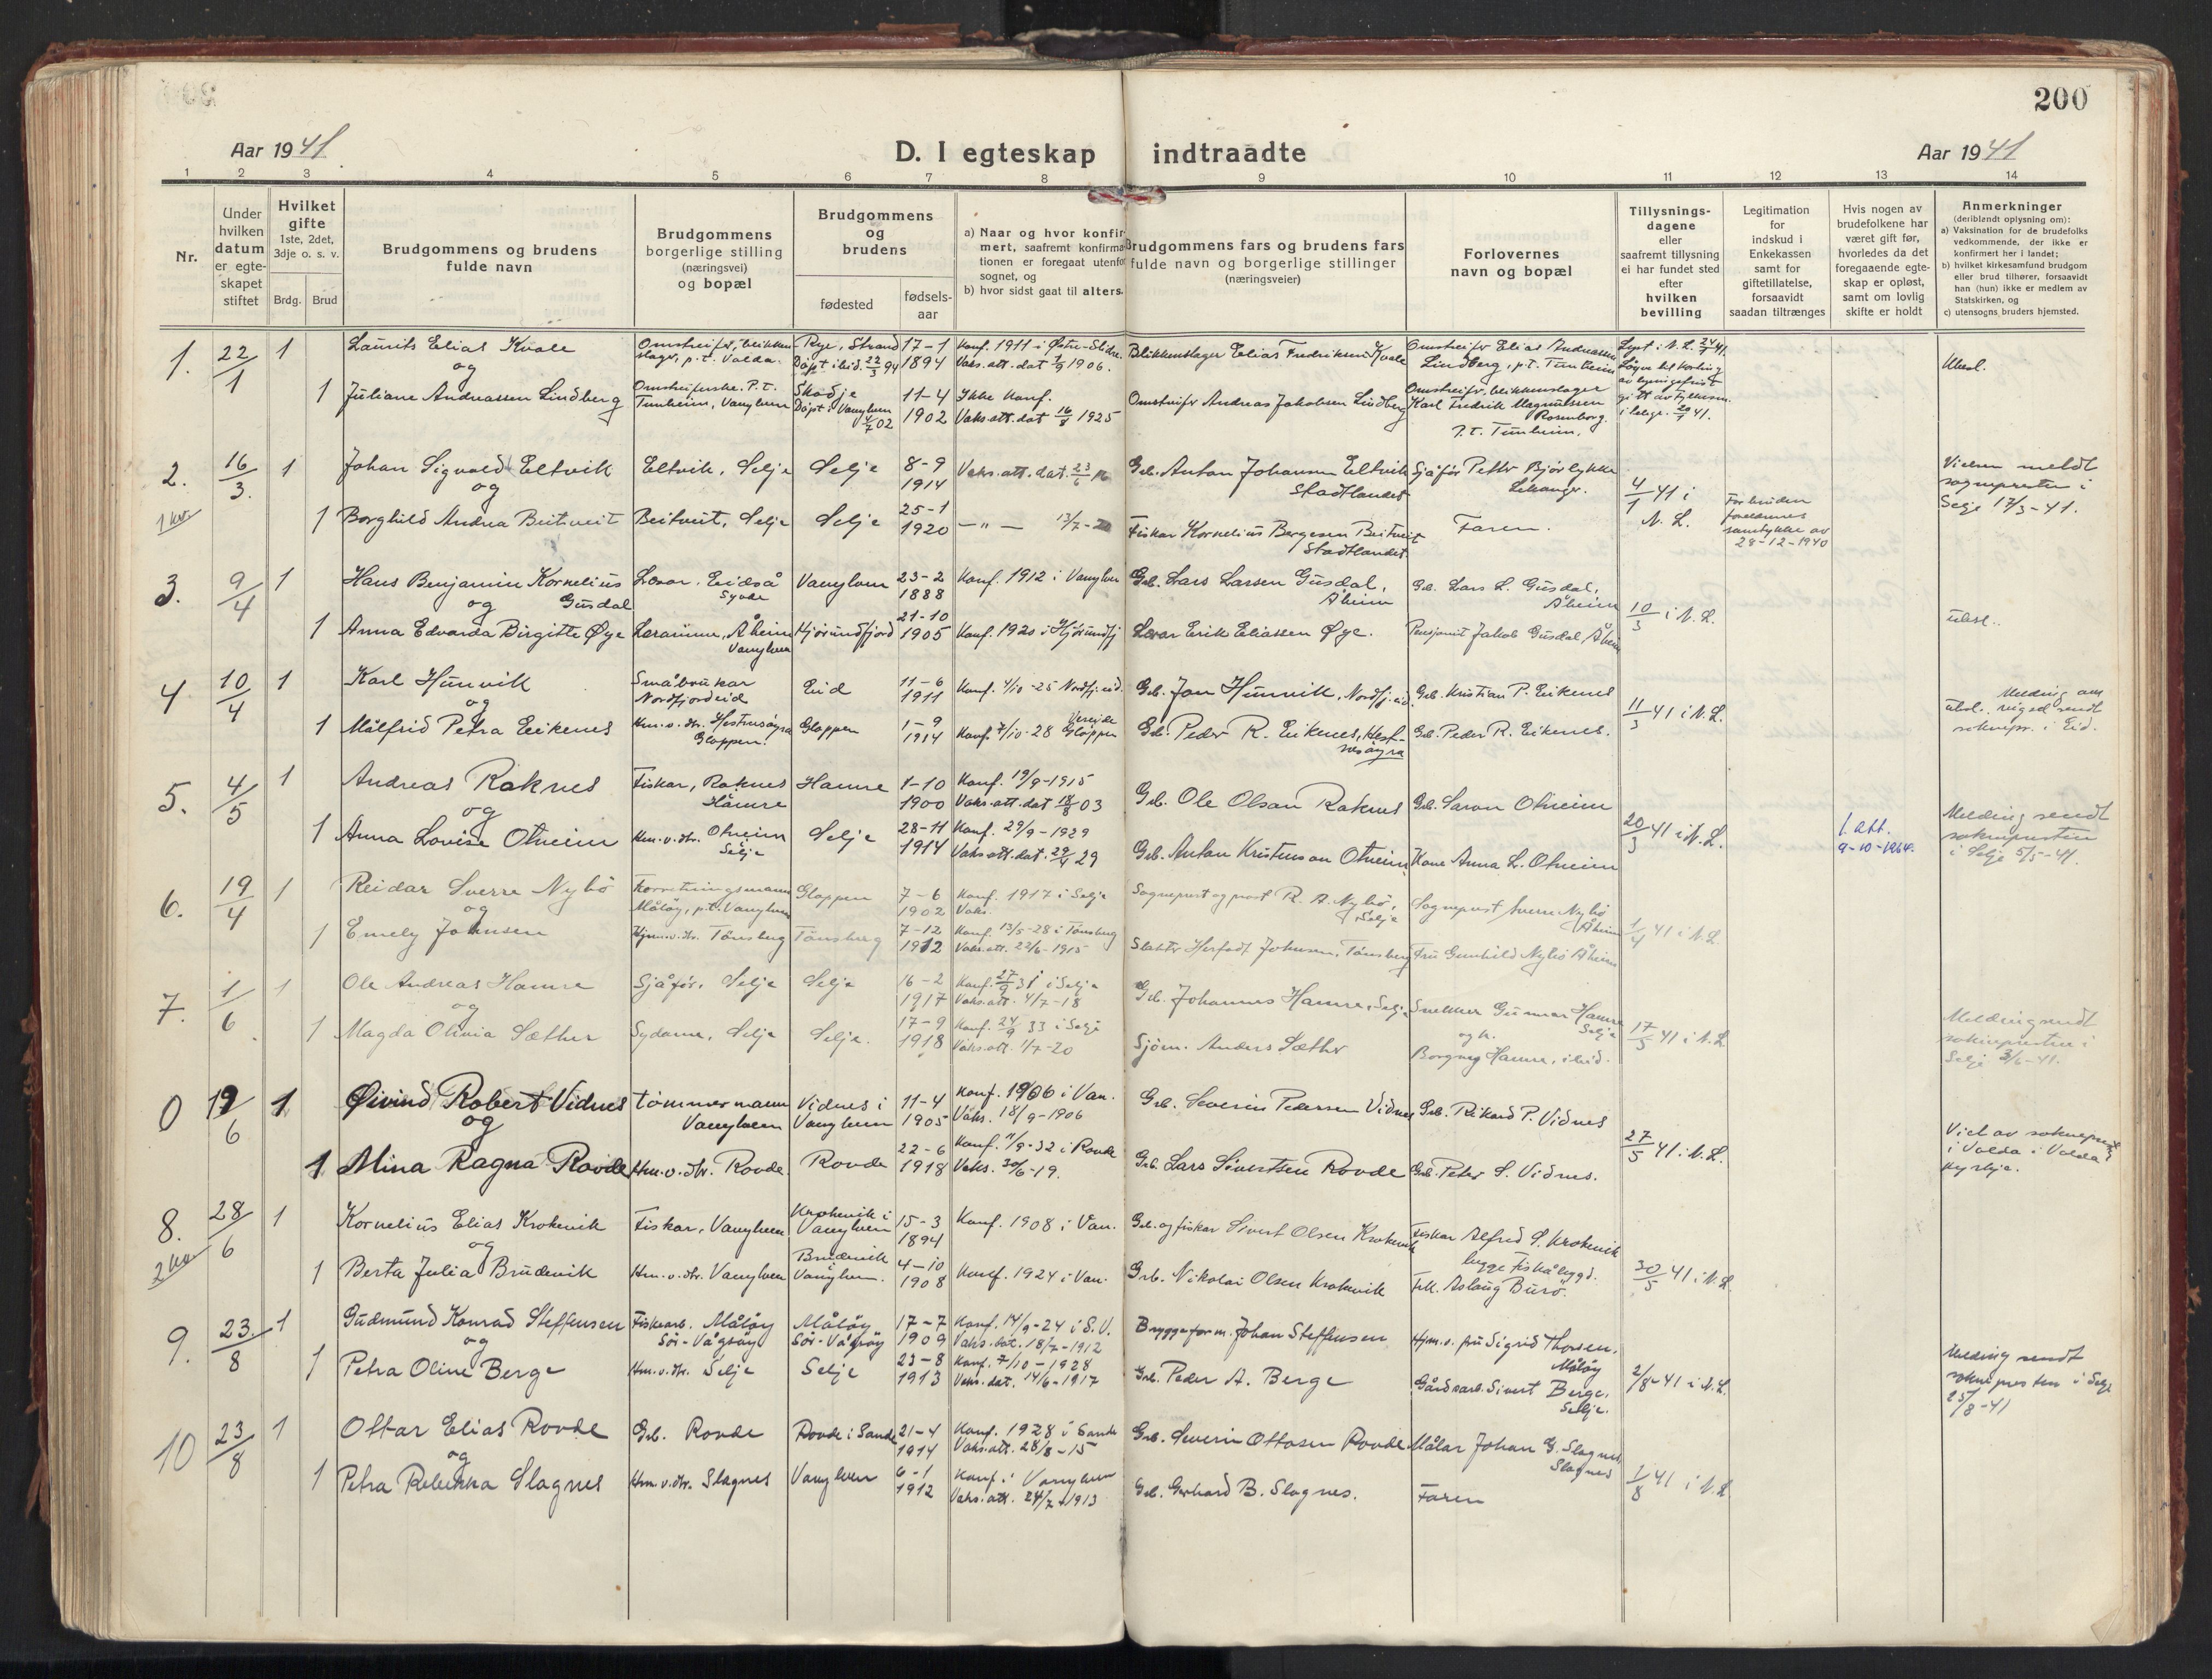 200
Aar 1941
D. I egteskap indtraadte
Aar 1941
1 2 3 4 5 6 7 8 9 10 11 12 13 14
Nr.
Under hvilken datum er egteskapet stiftet
Hvilket gifte 1ste, 2det, 3dje o. s. v.
Brdg. Brud
Brudgommens og brudens fulde navn
Brudgommens borgerlige stilling (næringsvei) og bopæl
Brudgommens og brudens
fødested
fødsels-aar
a) Naar og hvor konfirmert, saafremt konfirmationen er foregaat utenfor sognet, og
b) hvor sidst gaat til alters.
Brudgommens fars og brudens fars fulde navn og borgerlige stillinger (næringsveier)
Forlovernes navn og bopæl
Tillysningsdagene eller saafremt tillysning ei har fundet sted efter hvilken bevilling
Legitimation for indskud i Enkekassen samt for giftetillatelse, forsaavidt saadan tiltrænges
Hvis nogen av brudefolkene har været gift før, hvorledes da det foregaaende egteskap er opløst, samt om lovlig skifte er holdt
Anmerkninger (deriblandt oplysning om):
a) Vaksination for de brudefolks vedkommende, der ikke er konfirmert her i landet;
b) hvilket kirkesamfund brudgom eller brud tilhører, forsaavidt han (hun) ikke er medlem av Statskirken, og
c) utensogns bruders hjemsted.
1. 22/1 1 Laurits Elias Kvale Omstreifer, blikkenslager, p.t. Volda. Rye, Strand Døpt ibid. 22/3 94 17-1 1894 Konf. 1911 i Østre-Slidre Vaks. att. dat 1/9 1906. Blikkenslager Elias Fredriksen Kvale Omstreifer Elias Andreassen Lindberg, p.t. Tunheim
og
1 Juliane Andreassen Lindberg Omstreiferske. P.t. Tunheim, Vanylven Skodje Døpt i Vanylven 6/7 02 11-4 1902 Ikke konf. Vaks. att. dat 16/8 1925 Omstreifer Andreas Jakobsen Lindberg Omstreifer, blikkenslager Karl Fredrik Magnussen Rosenborg. P.t. Tunheim.
2. 16/3. 1 Johan Sigvald Eltvik Eltvik, Selje Selje 8-9 1914 Vaks. att. dat. 23/6 16 Grb. Anton Johansen Eltvik Stadtlandet Sjåfør Petter Bjørlykke Leikanger. 4/1 41 i N. L. Vielsen meldt sognepresten i Selje 17/3-41.
og
1 kv. 1 Borghild Andrea Beitveit Beitveit, Selje Selje 25-1 1920 — " — 13/7-20 Fiskar Kornelius Bergesen Beitveit Stadtlandet Faren. For bruden foreldrenes samtykke av 28-12-1940
3. 9/4 1 Hans Benjamin Kornelius Gusdal Lærar, Eidså Syvde Vanylven 23-2 1888 Konf. 1912 i Vanylven Grb. Lars Larsen Gusdal, Åheim Grb. Lars L. Gusdal, Åheim 10/3 i N. L. utbl..
og
1 Anna Edvarda Birgitte Øye Lærarinne, Åheim Vanylven Hjørundfjord 21-10 1905 Konf. 1920 i Hjørundfj Lærar Erik Eliassen Øye. Pensjonist Jakob Gusdal, Åheim
4 10/4 1 Karl Hunvik Småbrukar Nordfjordeid Eid 11-6 1911 Konf. 4/10-25 Nordfj.eid. Grb. Jon Hunvik, Nordfj.eid Grb. Kristian P. Eikenes 11/3 41 i N. L. Melding om sendt soknepr. i Eid.
og
1 Målfrid Petra Eikenes Hm. v. dtr. Hestenesøyra Gloppen. Gloppen 1-9 1914 Konf. 7/10-28 Vereide Gloppen Grb. Peder R. Eikenes, Hestnesøyra Grb. Peder R. Eikenes.
5. 4/5 1 Andreas Raknes Fiskar, Raknes Hamre Hamre 1-10 1900 Konf. 19/9-1915 Vaks. att. dat 18/8 03 Grb. Ole Olson Raknes Grb. Saron Otneim 20/3 41 i N. L. 1. att. 9-10-1964. Melding sendt soknepresten i Selje 5/5-41.
og
1 Anna Lovise Otneim Hm. v. dtr. Otneim Selje Selje 28-11 1914 Konf. 29/9-1929 Vaks. att. dat. 29/4 29 Grb. Anton Kristenson Otneim Kone Anna L. Otneim
6. 19/4 1 Reidar Sverre Nybø Forretningsmann Måløy, p.t. Vanylven Gloppen 7-6 1902 Konf. 1917 i Selje Vaks. Sogneprest og prost R. A. Nybø, Selje Sogneprest Sverre Nybø Åheim 1/4 41 i N. L.
og
1 Emely Johnsen Hjm. v. dtr. Tønsberg Tønsberg 7-12 1912 Konf. 13/5-28 i Tønsberg Vaks. att. 22/6-1915 Slakter Herfadt Johnsen, Tønsberg Fru Gunhild Nybø Åheim
7. 1/6. 1 Ole Andreas Hamre Sjåfør, Selje Selje 16-2 1917 Konf. 27/9 31 i Selje Vaks. att. 4/7-18 Grb. Johannes Hamre, Selje Snekker Gunnar Hamre Selje 17/5 41 i N. L. Melding sendt soknepresten i Selje 3/6-41.
og
1 Magda Olivia Sæther Sydame, Selje Selje. 17-9 1918 Konf. 24/9 33 i Selje Vaks. att. 1/7-20 Sjøm. Anders Sæther og h. Borgny Hamre, ibid.
0 19/6 1 Øivind Robert Vidnes Tømmermann Vanylven Vidnes i Vanylven 11-4 1905 Konf. 1906 i Van. Vaks. 18/9-1906 Grb. Severin Pedersen Vidnes Grb. Rikard P. Vidnes 27/5 41. i N. L. Viet av soknepresten i Volda i Volda kyrkje.
og
1 Mina Ragna Rovde Hm. v. dtr. Rovde. Rovde 22-6 1918 Konf. 11/9-32 i Rovde Vaks. 30/6-19. Grb. Lars Sivertsen Rovde Grb. Peter S. Vidnes.
8. 28/6 1 Kornelius Elias Krokenvik Fiskar, Vanylven Krokenvik i Vanylven 15-3 1894 Konf. 1908 i Van. Grb. og fiskar Sivert Olsen Krokenvik Fiskar Alfred S. Krokenvik bygge Fiskåbygd. 30/5 41 i N. L.
og
2 kv. 1 Berta Julia Brudevik Hm. v. dtr. Vanylven Brudevik Vanylven. 4-10 1908 Konf. 1924 i Van. Grb. Nikolai Olsen Krokenvik Frk. Aslaug Burø.
9. 23/8 1 Gudmund Konrad Steffensen Fiskearb. Måløy Sør-Vågsøy Måløy Sør-Vågsøy 17-7 1909 Konf. 14/9-24 i S.V. Vaks. dat. 18/7-1912 Bryggeform. Johan Steffensen Hjm. v. fru Sigrid Thorsen. Måløy 2/8-41 i N. L. Melding sendt soknepresten i Selje 25/8-41
og
1 Petra Oline Berge Hm. v. dtr. Selje Selje 23-8 1913 Konf. 7/10-1928 Vaks. dat. 14/6-1917 Grb. Peder A. Berge Gårdsarb. Sivert Berge, Selje.
10 23/8 1 Ottar Elias Rovde Grb. Rovde Rovde i Sande 21-4 1914 Konf. 1928 i Sande Vaks. att. 28/8-15 Grb. Severin Ottosen Rovde Målar Johan G. Slagnes, Slagnes 1/8 41 i N. L
og
1 Petra Rebekka Slagnes Hm. v. dtr. Slagnes Vanylven 6-1 1912 Konf. i Vanylven Vaks. att. 24/7-1913 Grb. Gerhard B. Slagnes. Faren